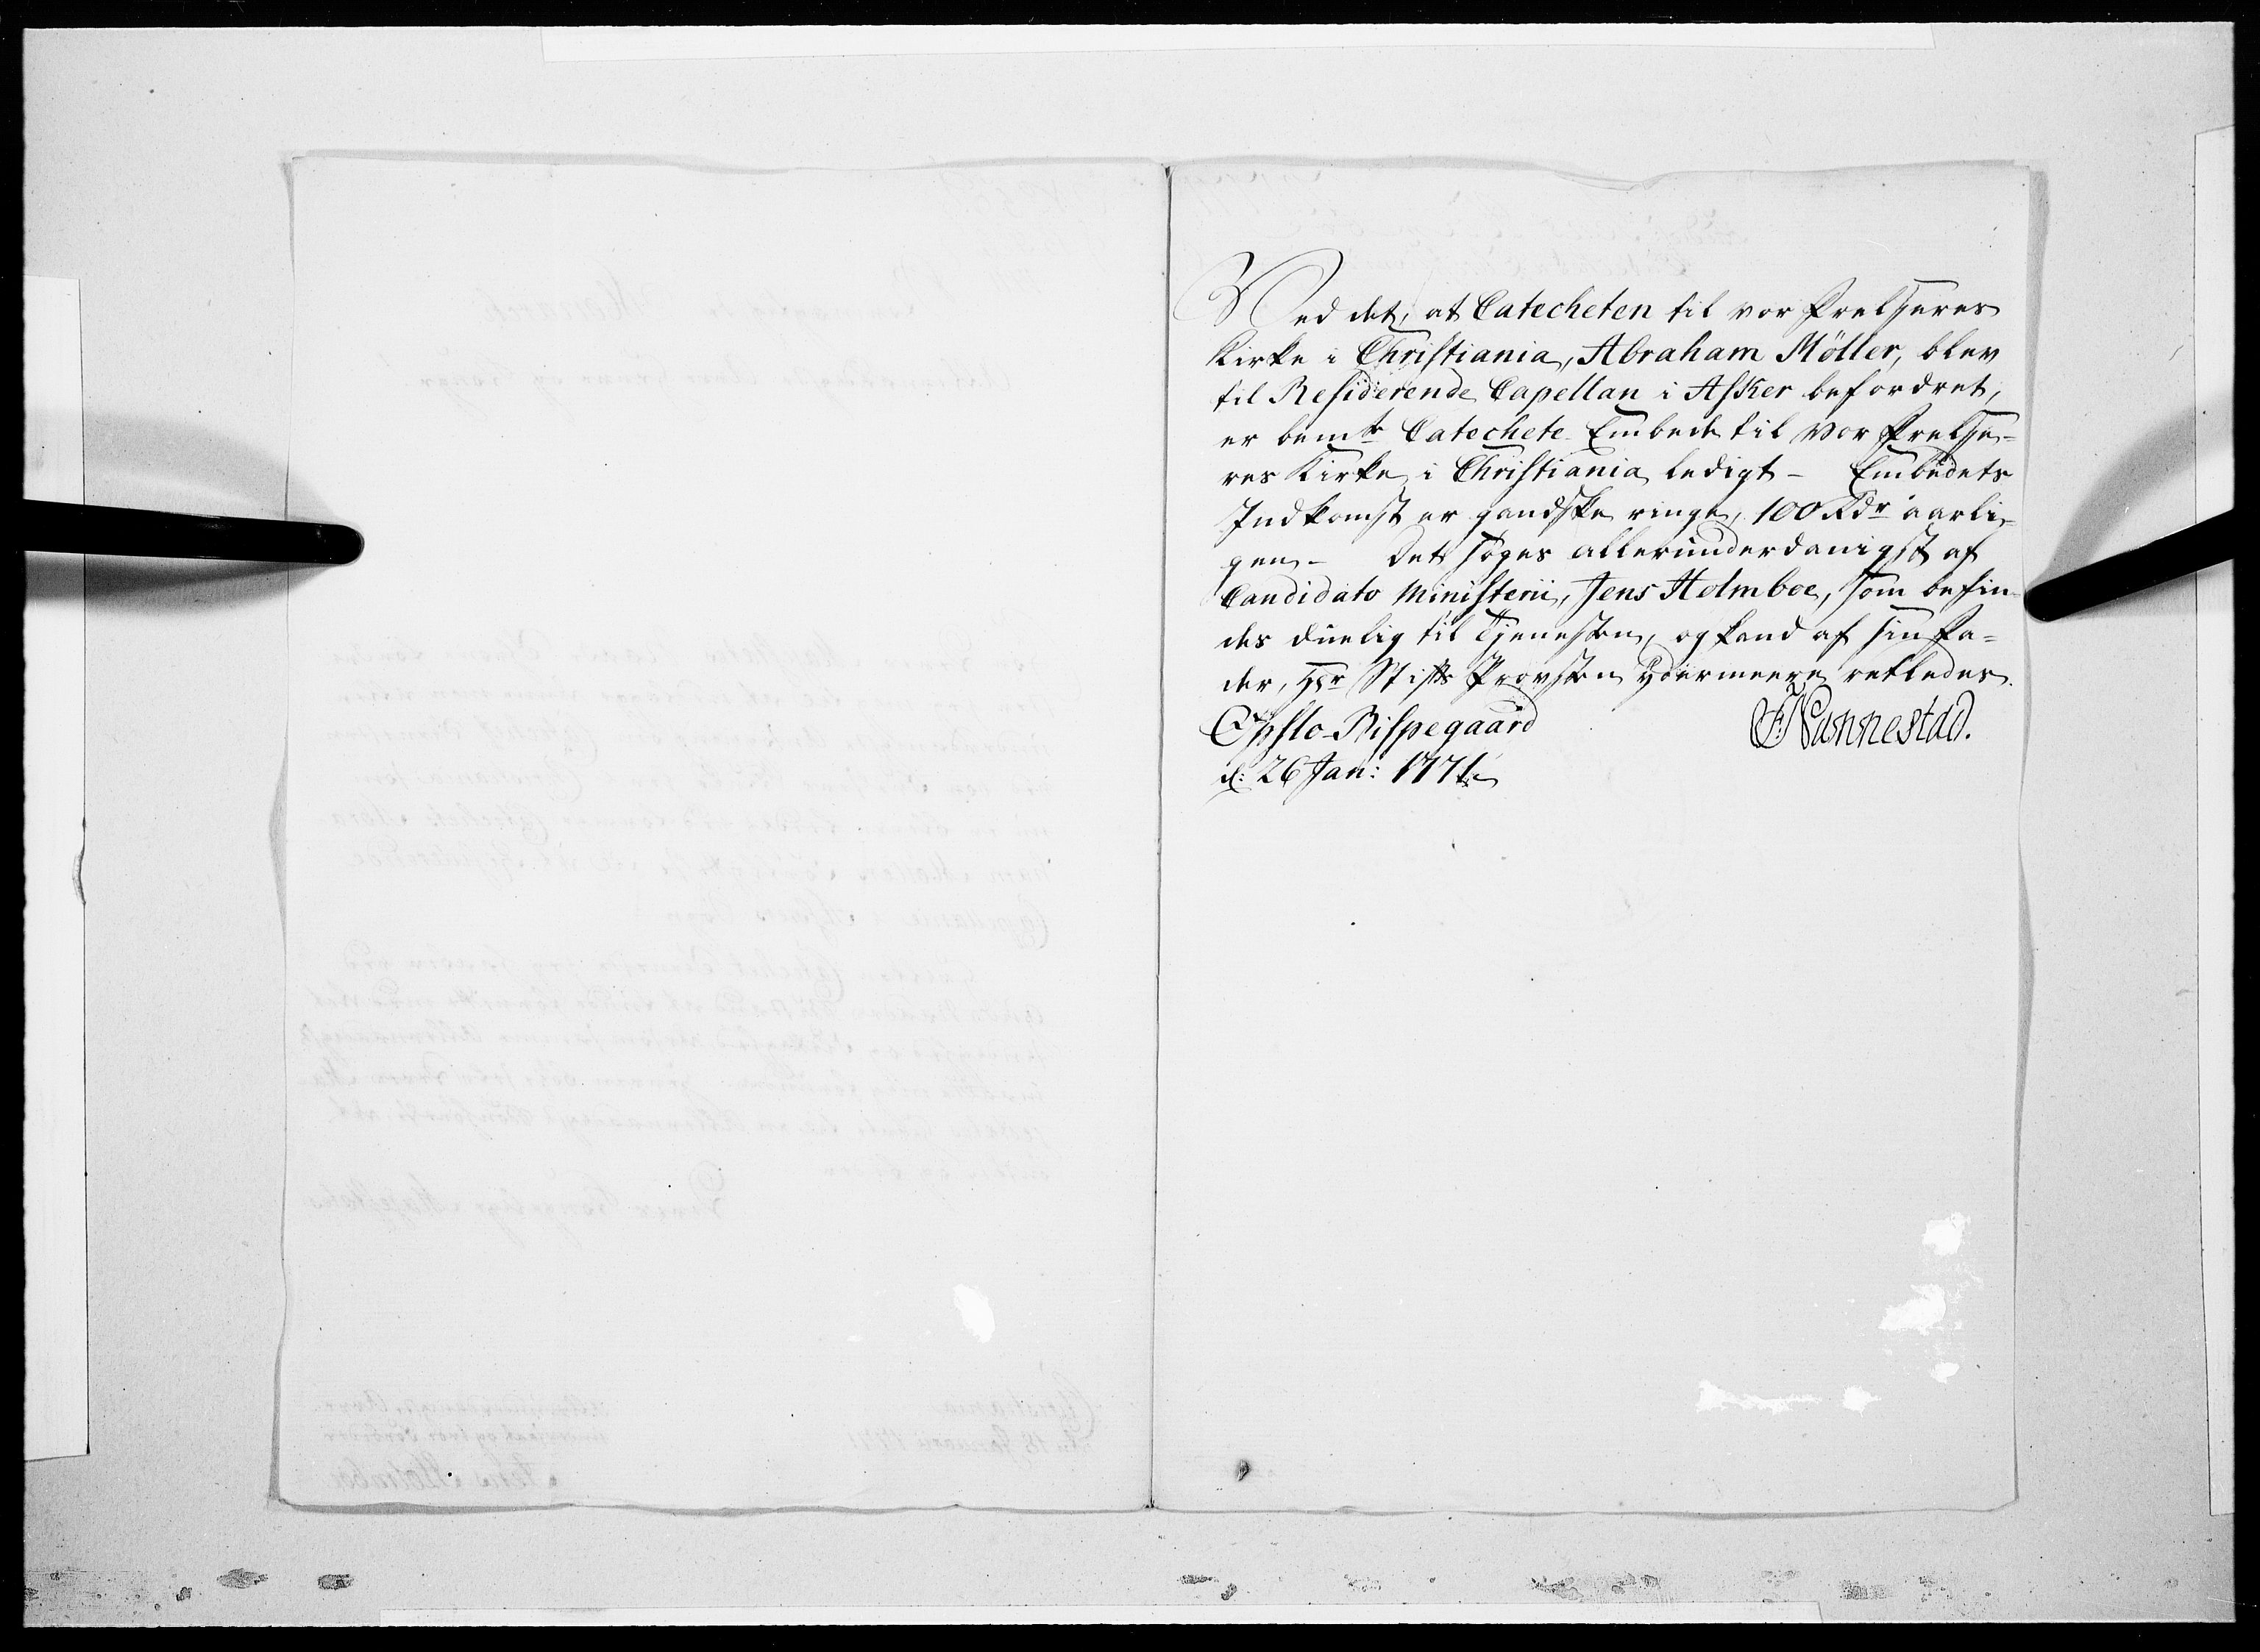 Ved det, at Catecheten til vor Frelseres
Kirke i Christiania, Abraham Möller, blev
til Residerende Capellan i Asker befordret,
er bemte Catechete-Embede til Vor Frelse-
res Kirke i Christiania ledigt - Embedets
Indkomst er gandske ringe, 100 Rdr aarli-
gen - Det søges allerunderdanigst af
Candidato Ministerii, Jens Holmboe, som befin-
des duelig til Tjenesten, og kand af sin Fa-
der, Hr Stifts Provsten ydermeere veiledes.
Opslo-Bispegaard
F: Nannestad.
d: 26 Jan: 1771